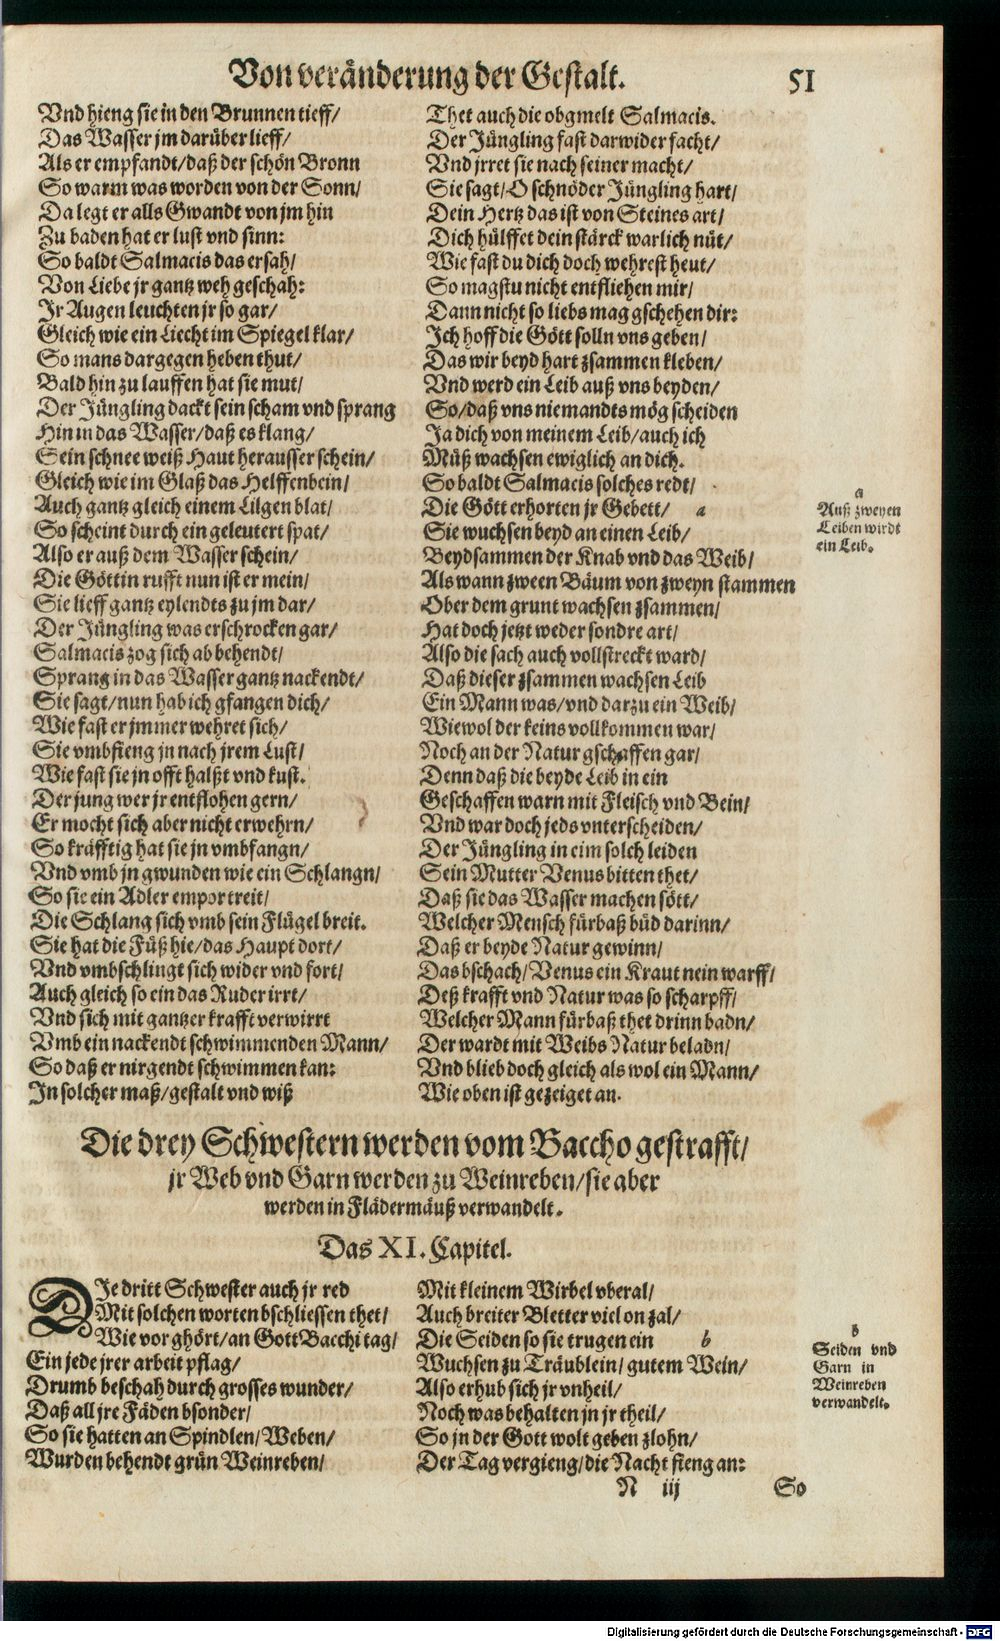 Von veränderung der Gestalt.
51
Vnd hieng sie in den Brunnen tieff/
Das Wasser jm darüber lieff/
Als er empfandt/daß der schön Bronn
So warm was worden von der Sonn/
Da legt er alls Gwandt von jm hin
Zu baden hat er lust vnd sinn:
So baldt Salmacis das ersah/
Von Liebe jr gantz weh geschah:
Jr Augen leuchten jr so gar/
Gleich wie ein Liecht im Spiegel klar/
So mans dargegen heben thut/
Bald hin zu lauffen hat sie mut/
Der Jüngling dackt sein scham vnd sprang
Hin in das Wasser/daß es klang/
Sein schnee weiß Haut herausser schein/
Gleich wie im Glaß das Helffenbein/
Auch gantz gleich einem Lilgen blat/
So scheint durch ein geleutert spat/
Also er auß dem Wasser schein/
Die Göttin rufft nun ist er mein/
Sie lieff gantz eylendts zu jm dar/
Der Jüngling was erschrocken gar/
Salmacis zog sich ab behendt/
Sprang in das Wasser gantz nackendt/
Sie sagt/nun hab ich gfangen dich/
Wie fast er jmmer wehret sich/
Sie vmbfieng jn nach jrem Lust/
Wie fast sie jn offt halßt vnd kust.
Der jung wer jr entflohen gern/
Er mocht sich aber nicht erwehrn/
So kräfftig hat sie jn vmbfangn/
Vnd vmb jn gwunden wie ein Schlangn/
So sie ein Adler empor treit/
Die Schlang sich vmb sein Flügel breit.
Sie hat die Füß hie/das Haupt dort/
Vnd vmbschlingt sich wider vnd fort/
Auch gleich so ein das Ruder irrt/
Vnd sich mit gantzer krafft verwirrt
Vmb ein nackendt schwimmenden Mann/
So daß er nirgendt schwimmen kan:
In solcher maß/gestalt vnd wiß
Thet auch die obgmelt Salmacis.
Der Jüngling fast darwider facht/
Vnd jrret sie nach seiner macht/
Sie sagt/O schnöder Jüngling hart/
Dein Hertz das ist von Steines art/
Dich hülffet dein stärck warlich nüt/
Wie fast du dich doch wehrest heut/
So magstu nicht entfliehen mir/
Dann nicht so liebs mag gschehen dir:
Ich hoff die Gött solln vns geben/
Das wir beyd hart zsammen kleben/
Vnd werd ein Leib auß vns beyden/
So/daß vns niemandts mög scheiden
Ja dich von meinem Leib/auch ich
Müß wachsen ewiglich an dich.
So baldt Salmacis solches redt/
Die Gött erhorten jr Gebett/ a
Sie wuchsen beyd an einen Leib/
Beydsammen der Knab vnd das Weib/
Als wann zween Bäum von zweyn stammen
Ober dem grunt wachsen zsammen/
Hat doch jetzt weder sondre art/
Also die sach auch vollstreckt ward/
Daß dieser zsammen wachsen Leib
Ein Mann was/vnd darzu ein Weib/
Wiewol der keins vollkommen war/
Noch an der Natur gschaffen gar/
Denn daß die beyde Leib in ein
Geschaffen warn mit Fleisch vnd Bein/
Vnd war doch jeds vnterscheiden/
Der Jüngling in eim solch leiden
Sein Mutter Venus bitten thet/
Daß sie das Wasser machen sött/
Welcher Mensch fürbaß büd darinn/
Daß er beyde Natur gewinn/
Das bschach/Venus ein Kraut nein warff/
Deß krafft vnd Natur was so scharpff/
Welcher Mann fürbaß thet drinn badn/
Der wardt mit Weibs Natur beladn/
Vnd blieb doch gleich als wol ein Mann/
Wie oben ist gezeiget an.
a
Auß zweyen
Leiben wirdt
ein Leib.
Die drey Schwestern werden vom Baccho gestrafft/
jr Web vnd Garn werden zu Weinreben/sie aber
werden in Flädermäuß verwandelt.
Das XI. Capitel.
DJe dritt Schwester auch jr red
Mit solchen worten bschliessen thet/
Wie vor ghört/an Gott Bacchi tag/
Ein jede jrer arbeit pflag/
Drumb beschah durch grosses wunder/
Daß all jre Fäden bsonder/
So sie hatten an Spindlen/Weben/
Wurden behendt grün Weinreben/
Mit kleinem Wirbel vberal/
Auch breiter Bletter viel on zal/
Die Seiden so sie trugen ein b
Wuchsen zu Träublein/gutem Wein/
Also erhub sich jr vnheil/
Noch was behalten jn jr theil/
So jn der Gott wolt geben zlohn/
Der Tag vergieng/die Nacht fieng an:
b
Seiden vnd
Garn in
Weinreben
verwandelt.
N iij
So
Digitalisierung gefördert durch die Deutsche Forschungsgemeinschaft - DFG